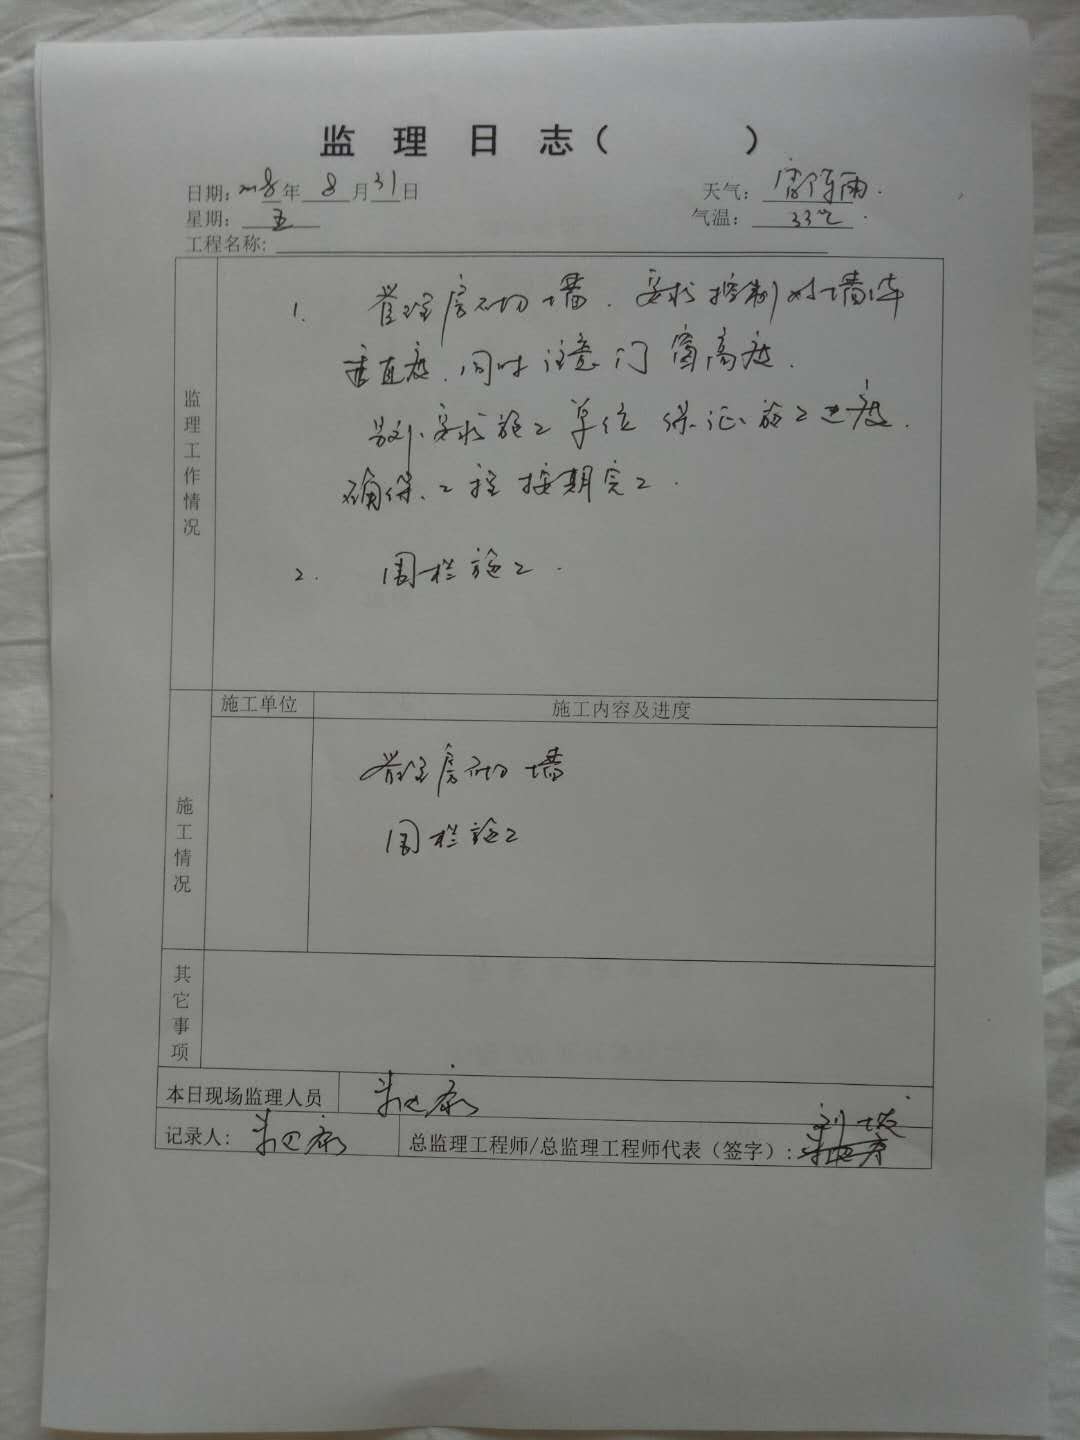 监理日志（ ）
日期：2018年8月31日 天气：雷阵雨.
星期：五 气温：33℃.
工程名称：
监理工作情况
1. 管理房砌墙.要求控制好墙体
垂直度.同时注意门窗高度.
另外.要求施工单位保证施工进度.
确保工程按期完工.
2. 围栏施工.
施工单位 施工内容及进度
施工情况
管理房砌墙
围栏施工
其它事项
本日现场监理人员
记录人： 总监理工程师/总监理工程师代表（签字）：